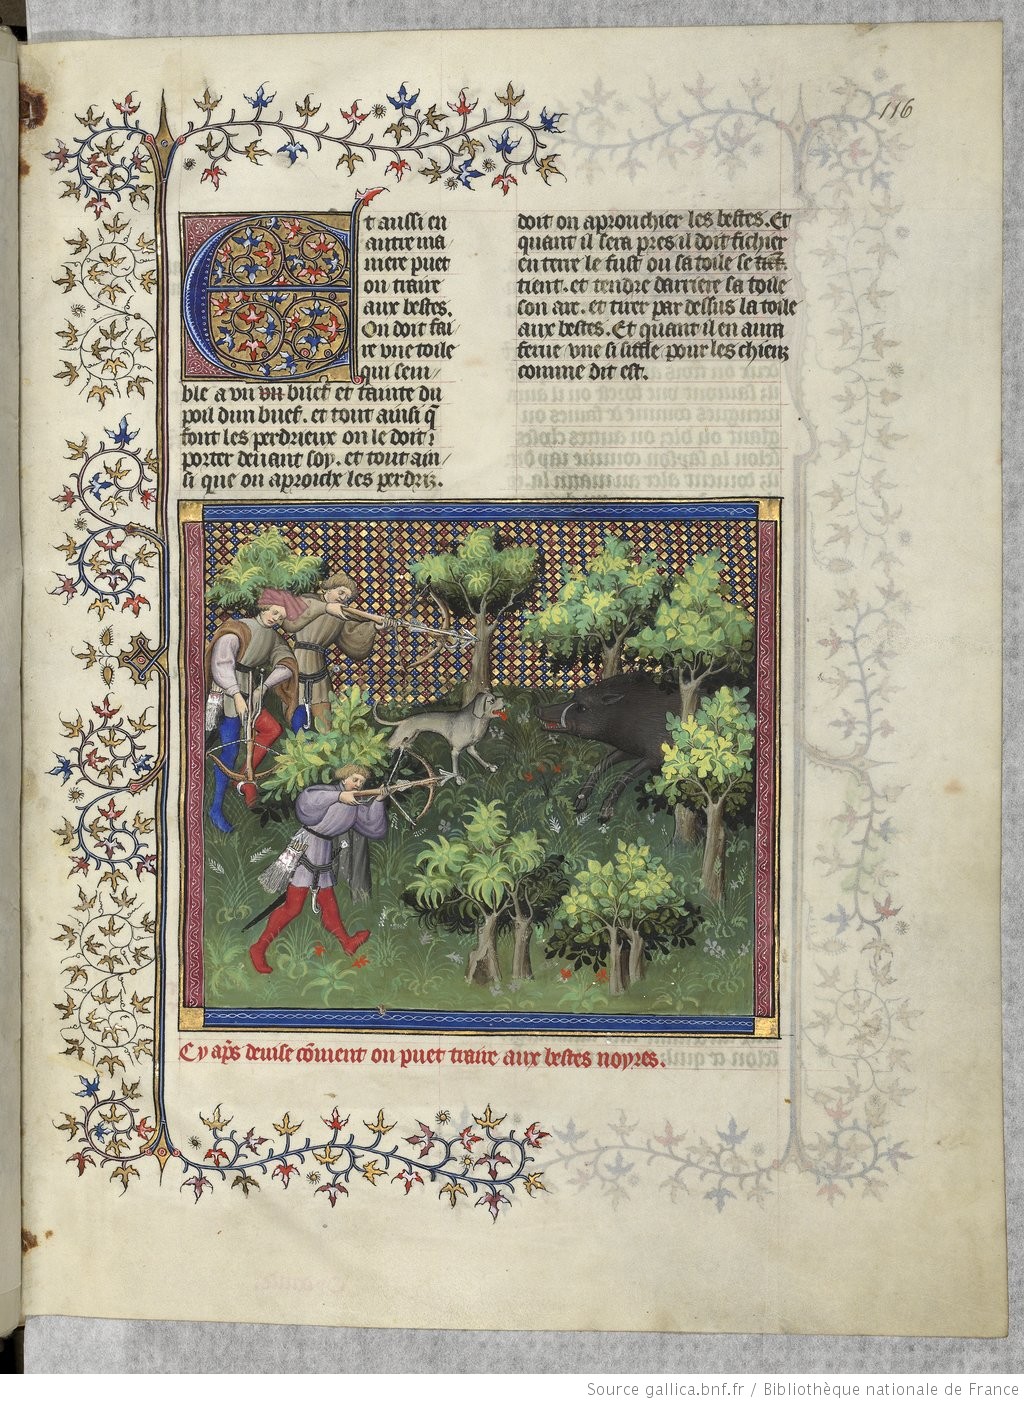 116
Et aussi en
autre ma/
niere puet
on traire
aux bestes.
On doit fai/
re une toile
qui sem/
ble a vn vn buef et tainte du
poil dun buef. et tout ainsi q̃
font les perdrieux on le doit
porter deuant soy. et tout ain/
si que on aproiche les perdriz.
doit on aprouchier les bestes. Et
quant il sera pres il doit fichier
en terre le fust ou sa toile se
tient. et tendre darriere sa toile
son arc. et tirer par dessus la toile
aux bestes. Et quant il en aura
feru vne si siffle pour les chienz
comme dit est.
Cy apr̃s deuise cõment on puet traire aux bestes noyres.
Source gallica.bnf.fr / Bibliothèque nationale de France